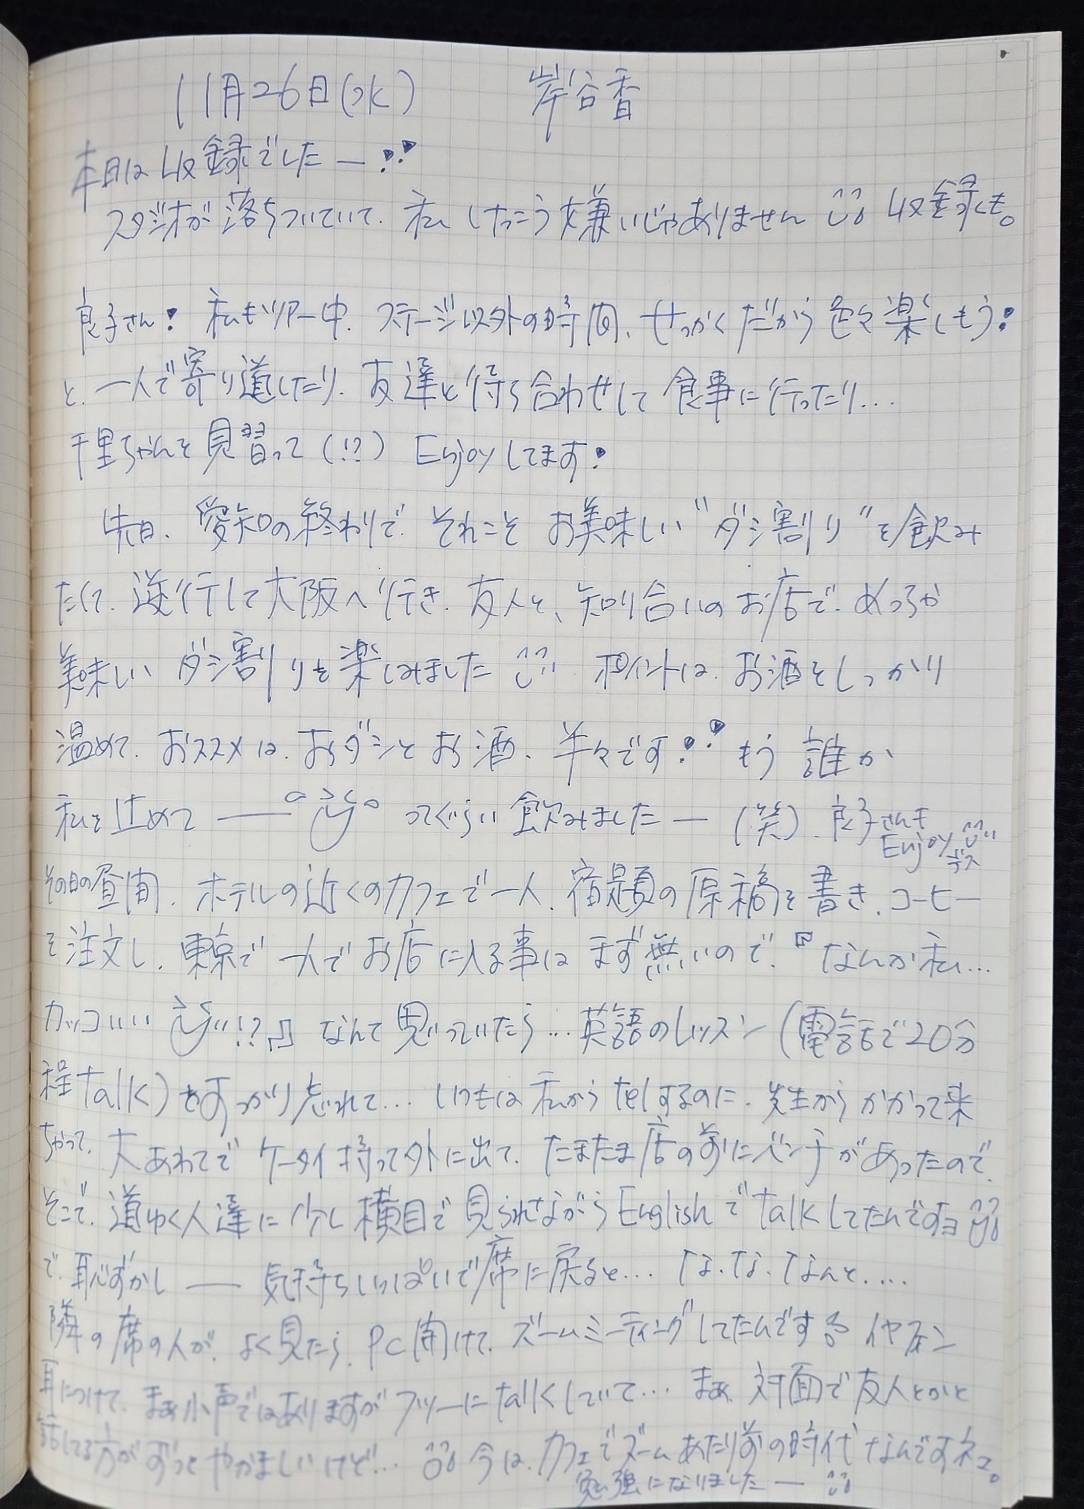 11月26日(水) 岸谷香
本日は収録でしたー!!
スタジオが落ちついていて、私けっこう嫌いじゃありません 収録も。
良子さん! 私もツアー中、ステージ以外の時間、せっかくだから色々楽しもう!
と、一人で寄り道したり、友達と待ち合わせして食事に行ったり...
千里ちゃんを見習って(!?) Enjoyしてます!
先日、愛知の終わりで、それこそお美味しい"ダシ割り"を飲み
たくて、逆行して大阪へ行き、友人と、知り合いのお店で、めっちゃ
美味しいダシ割りを楽しみました ポイントは、お酒をしっかり
温めて、おススメは、おダシとお酒、半々です!! もう誰か
私を止めてーー ってぐらい飲みましたー(笑)、良子さんも
Enjoy デス
その日の昼間、ホテルの近くのカフェで一人、宿題の原稿を書き、コーヒー
を注文し、東京で一人でお店に入る事はまず無いので、『なんか私...
カッコいい!?』なんて思っていたら...英語のレッスン(電話で20分
程talk)をすっかり忘れて... いつもは私からtelするのに、先生からかかって来
ちゃって、大あわてでケータイ持って外に出て、たまたま店の前にベンチがあったので、
そこで、道ゆく人達に少し横目で見られながらEnglishでtalkしてたんですョ
で、恥ずかしーー気持ちいっぱいで席に戻ると... な、な、なんと....
隣の席の人が、よく見たら、PC開けて、ズームミーティングしてたんですョ イヤホン
耳につけて、まぁ小声ではありますがフツーにtalkしていて... まぁ、対面で友人とかと
話してる方がずっとやかましいけど... 今は、カフェでズームあたり前の時代なんですネェ。
勉強になりましたー